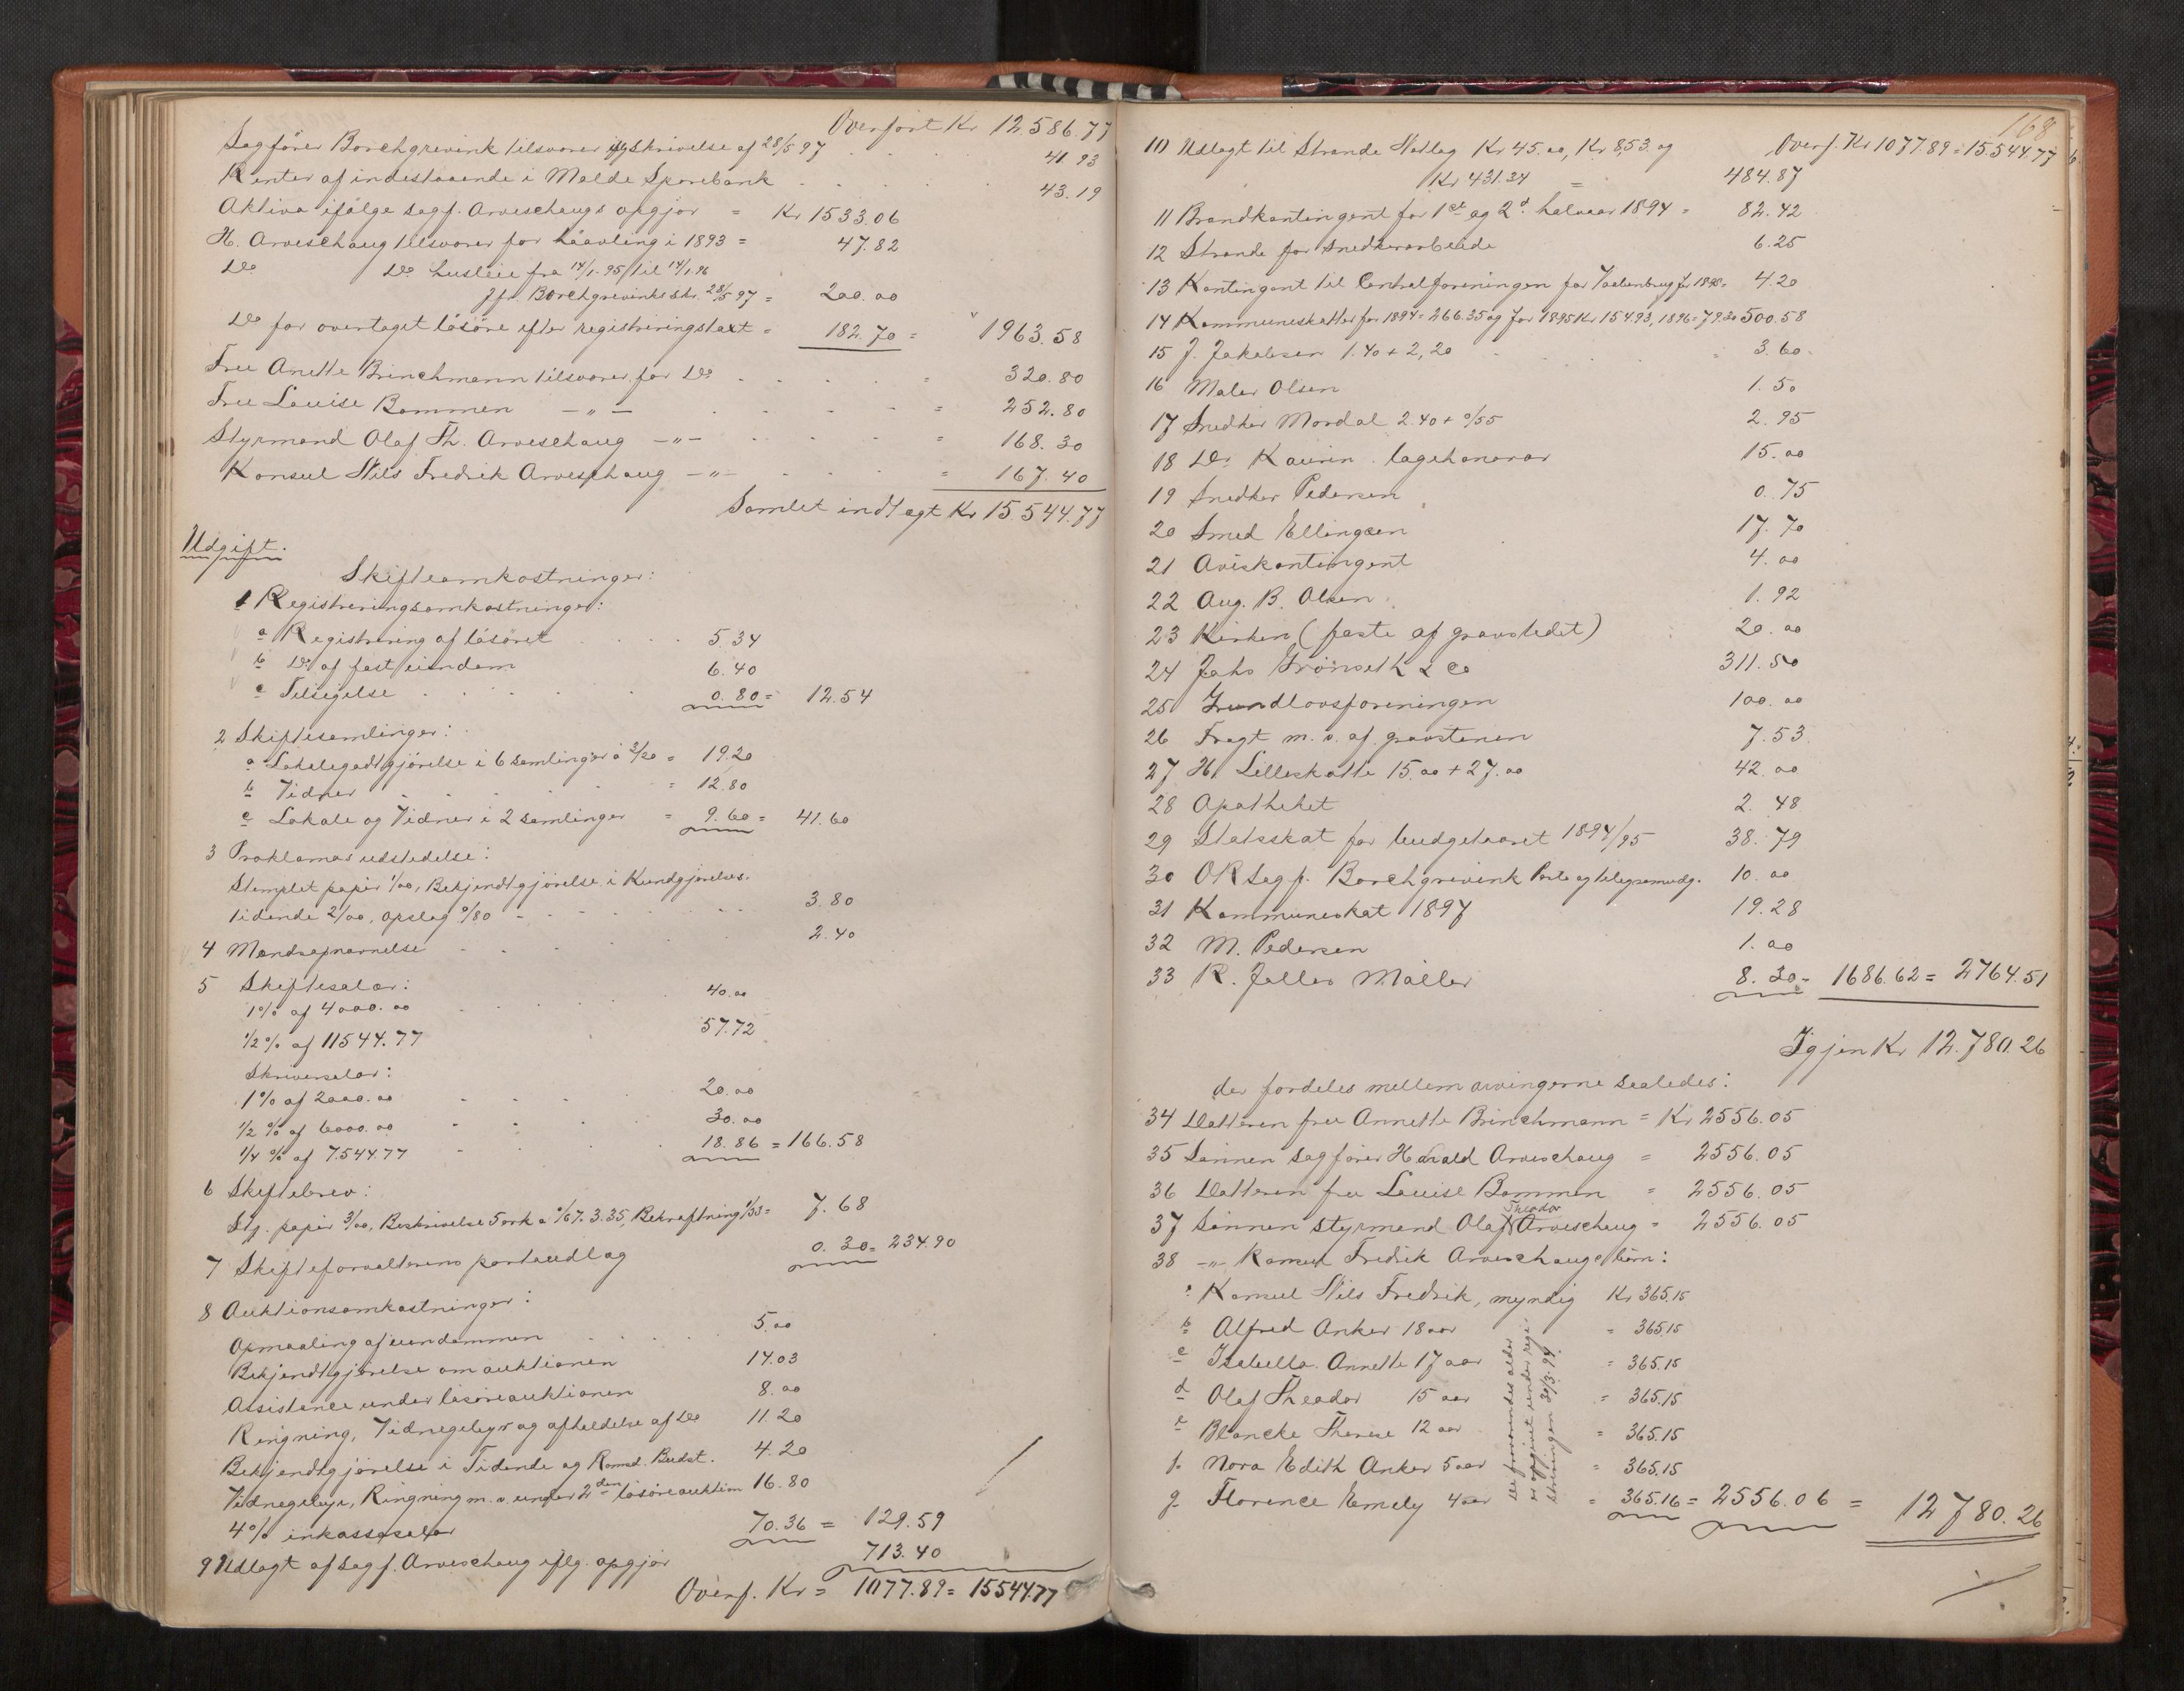 Overført Kr 12.586.77
Sagfører Borchgrevink tilsvarer iflg skrivelse af 28/5 97 41.93
Renter af indestaaende i Molde Sparebank 43.19
Aktiva ifølge sagf. Arveschougs opgjør = Kr 1533.06
H. Arveschoug tilsvarer for håavling i 1893 = 47.82
Do Do husleie fra 14/1-95 til 14/1.96
jfr. Borchgrevinks skr. 28/5 97 = 200.00
Do for overtaget løsøre efter registreringstaxt = 182.70 = 1963.58
Frue Anette Brinchmann tilsvarer for Do = 320.80
Frue Louise Bommen — " — = 252.80
Styrmand Olaf Th. Arveschoug — " — = 168.30
Konsul Nils Fredrik Arveschoug — " — = 167.40
Samlet indtægt Kr 15.544.77
Udgift.
Skifteomkostninger:
1 Registreringsomkostninger:
a Registrering af løsøret 5.34
b Do af fast eiendom 6.40
c Tilsigelse 0.80 = 12.54
2 Skiftesamlinger:
a Lokalegodtgjørelse i 6 samlinger à 3/20 = 19.20
b Vidner = 12.80
c Lokale og Vidner i 2 samlinger = 9.60 = 41.60
3 Proklamas udstedelse:
Stemplet papir 1/00, Bekjendtgjørelse i Kundgjørelses-
tidende 2/00, opslag 0/80 3.80
4 Mandsopnævnelse 2.40
5 Skiftesalær:
1% af 4000.00 40.00
1/2% af 11544.77 57.72
Skriversalær:
1% af 2000.00 20.00
1/2 % af 6000.00 30.00
1/4 % af 7.544.77 18.86 = 166.58
6 Skiftebrev:
Stp. papir 3/00, Beskrivelse 5 ark a 0/67 = 3.35, Bekræftning 1/33 = 7.68
7 Skifteforvalterens portoudlæg 0.30 = 234.90
8 Auktionsomkostninger:
Opmaaling af eiendommen 5.00
Bekjendtgjørelse om auktionen 14.03
Assistence under løsøreauktionen 8.00
Ringning, Vidnegebyr og afholdelse af Do 11.20
Bekjendtgjørelse i Tidende og Romsd. Budst. 4.20
Vidnegebyr, Ringning m. v. under 2den løsøreauktion 16.80
4% inkassosalær 70.36 = 129.59
9 Udlagt af sagf. Arveschoug iflg. opgjør 713.40
Overf. Kr = 1077.89 = 15544.77
168
Overf. Kr 1077.89 = 15.544.77
10 Udlagt til Strande Kr 45.00, Kr 8,53. og
Kr 431.34 = 484.87
11 Brandkontingent for 1ste og 2d. halvaar 1894 = 82.42
12 Strande for snedkerarbeide 6.25
13 Kontingent til Centralforeningen for 4.20
14 Kommuneskatter for 1894 = 266.35 og for 1895 Kr 154.93, 1896 = 79.30 500.58
15 J. Jakobsen 1.40 + 2,20 3.60
16 Maler Olsen 1.50
17 Snedker Mordal 2.40 + 0/55 2.95
18 Dr. Kaurin lægehonorar 15.00
19 Snedker Pedersen 0.75
20 Smed Ellingsen 17.70
21 Aviskontingent 4.00
22 Aug. B. Olsen 1.92
23 Kirken (fæste af gravstedet) 20.00
24 Johs Grønseth & Co 311.50
25 Grundlovsforeningen 100.00
26 Fragt m. v. af gravstenen 7.53
27 H. 15.00 + 27.00 42.00
28 Apotheket 2.48
29 Statsskat for budgetaaret 1894/95 38.79
30 ORSagf. Borchgrevink Porto og telegramudg. 10.00
31 Kommuneskat 1897 19.28
32 M. Pedersen 1.00
33 R. Møller 8.30 = 1686.62 = 2764.51
Igjen Kr 12.780.26
der fordeles mellem arvingerne saaledes:
34 Datteren frue Annette Brinchmann = Kr 2556.05
35 Sønnen sagfører Harald Arveschoug = 2556.05
36 Datteren frue Louise Bommen = 2556.05
37 Sønnen styrmand Olaf Theodor Arveschoug = 2556.05
38 — " — Konsul Fredrik Arveschougs børn:
a Konsul Nils Fredrik, myndig Kr 365.15
b Alfred Anker 18 aar = 365.15
c Isabella Annette 17 aar = 365.15
d Olaf Theodor 15 aar = 365.15
e Blancke Therese 12 aar = 365.15
f. Nora Edith Anker 5 aar = 365.15
g Florence Emely 4 aar = 365.16 = 2556.06 = 12780.26
er opgivet under regi-
streringen 30/3.94.